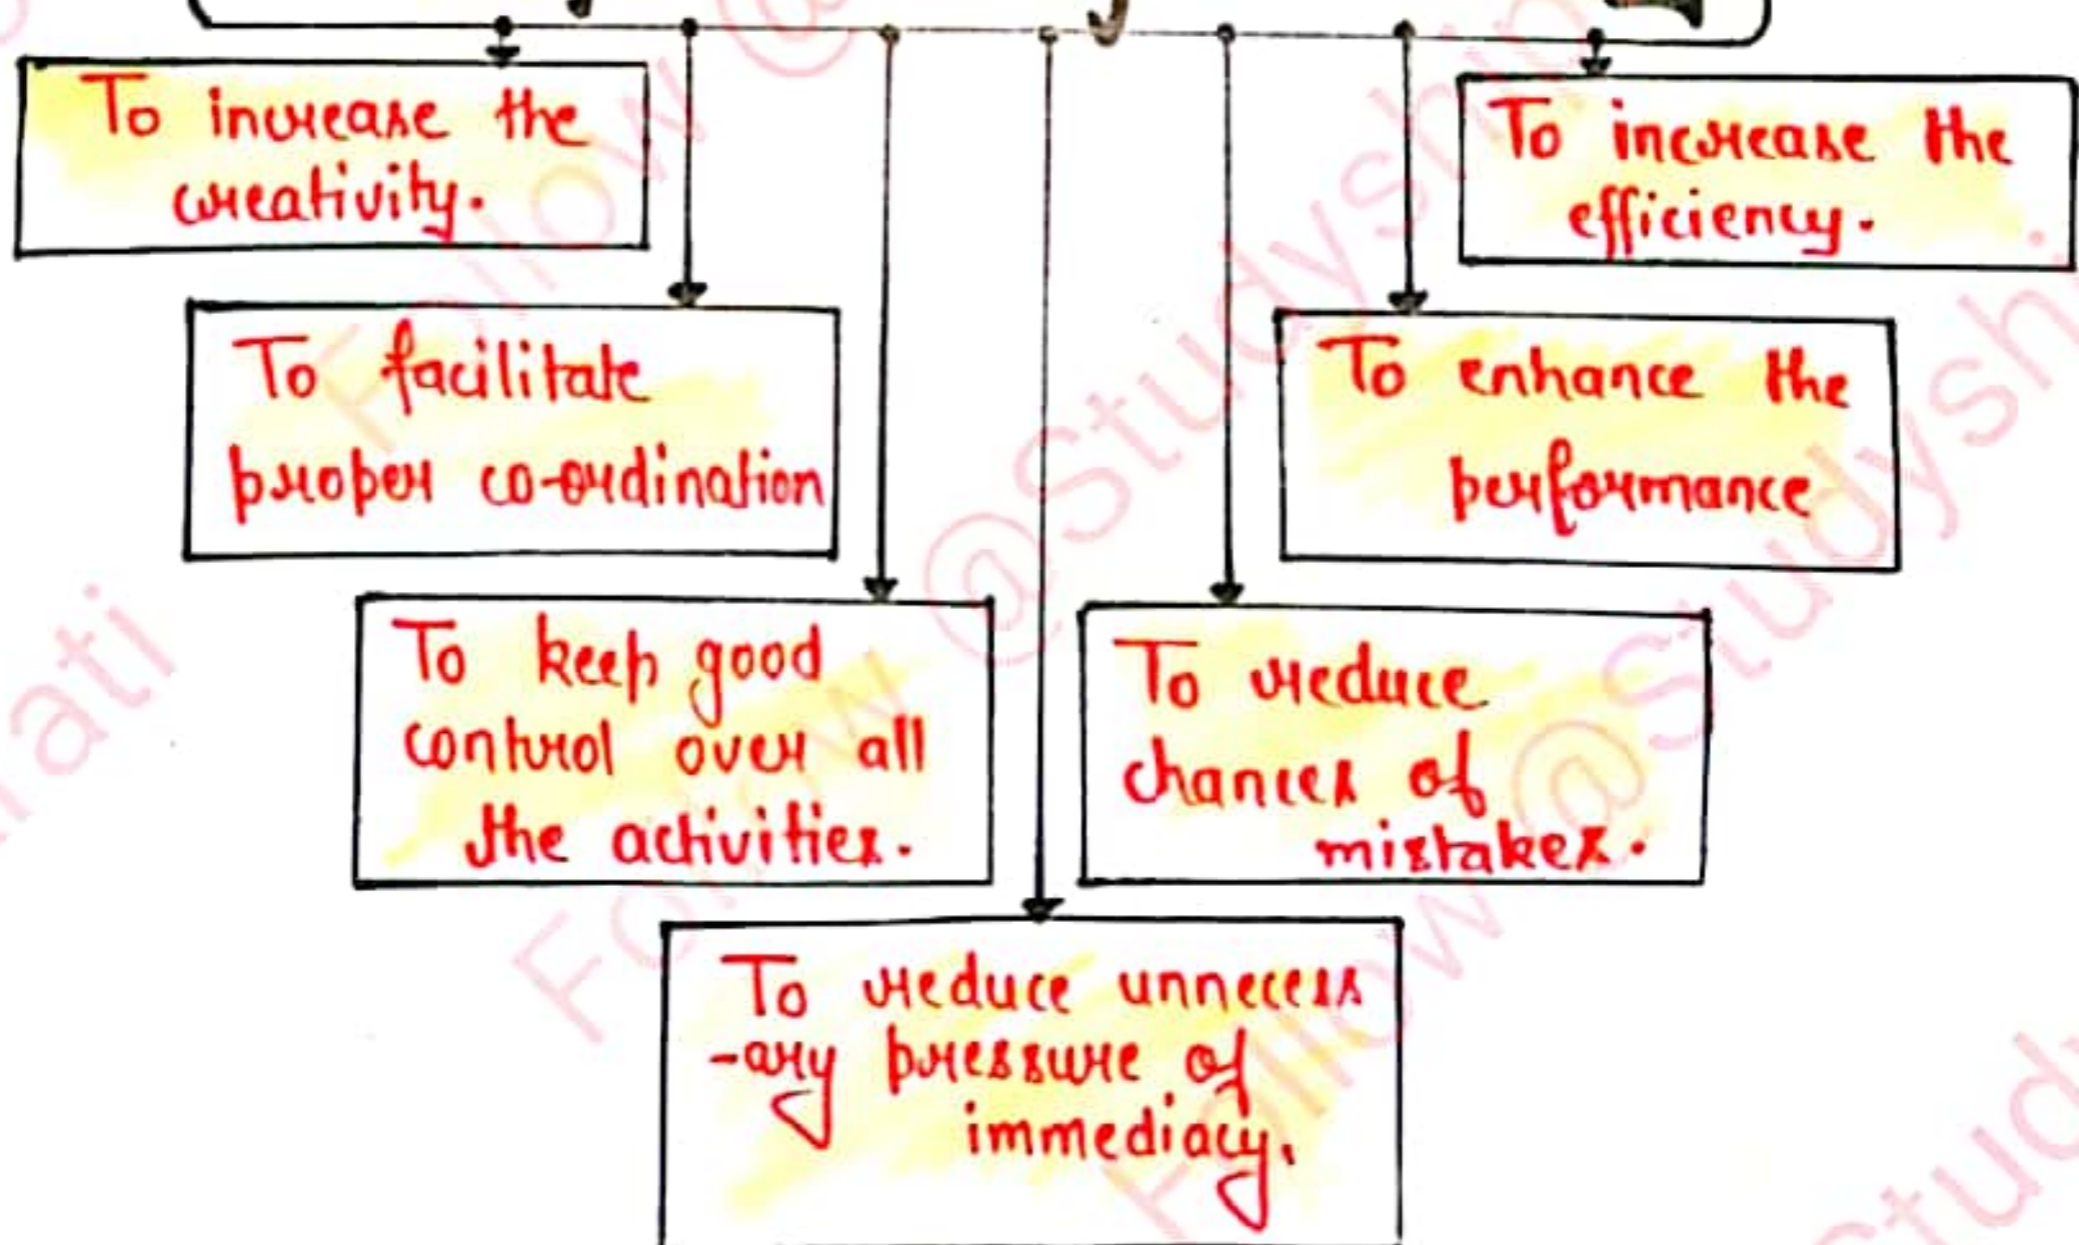 To increase the
creativity.
To increase the
efficiency.
To facilitate
proper co-ordination
To enhance the
performance
To keep good
control over all
the activities.
To reduce
chances of
mistakes.
To reduce unnecess
-ary pressure of
immediacy.
Follow @Studyship
Follow @Studysh
Follow @Studysh